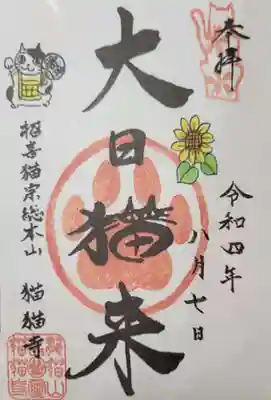 奉拝
令和四年
八月七日
大日猫来
招喜猫宗総本山 猫猫寺